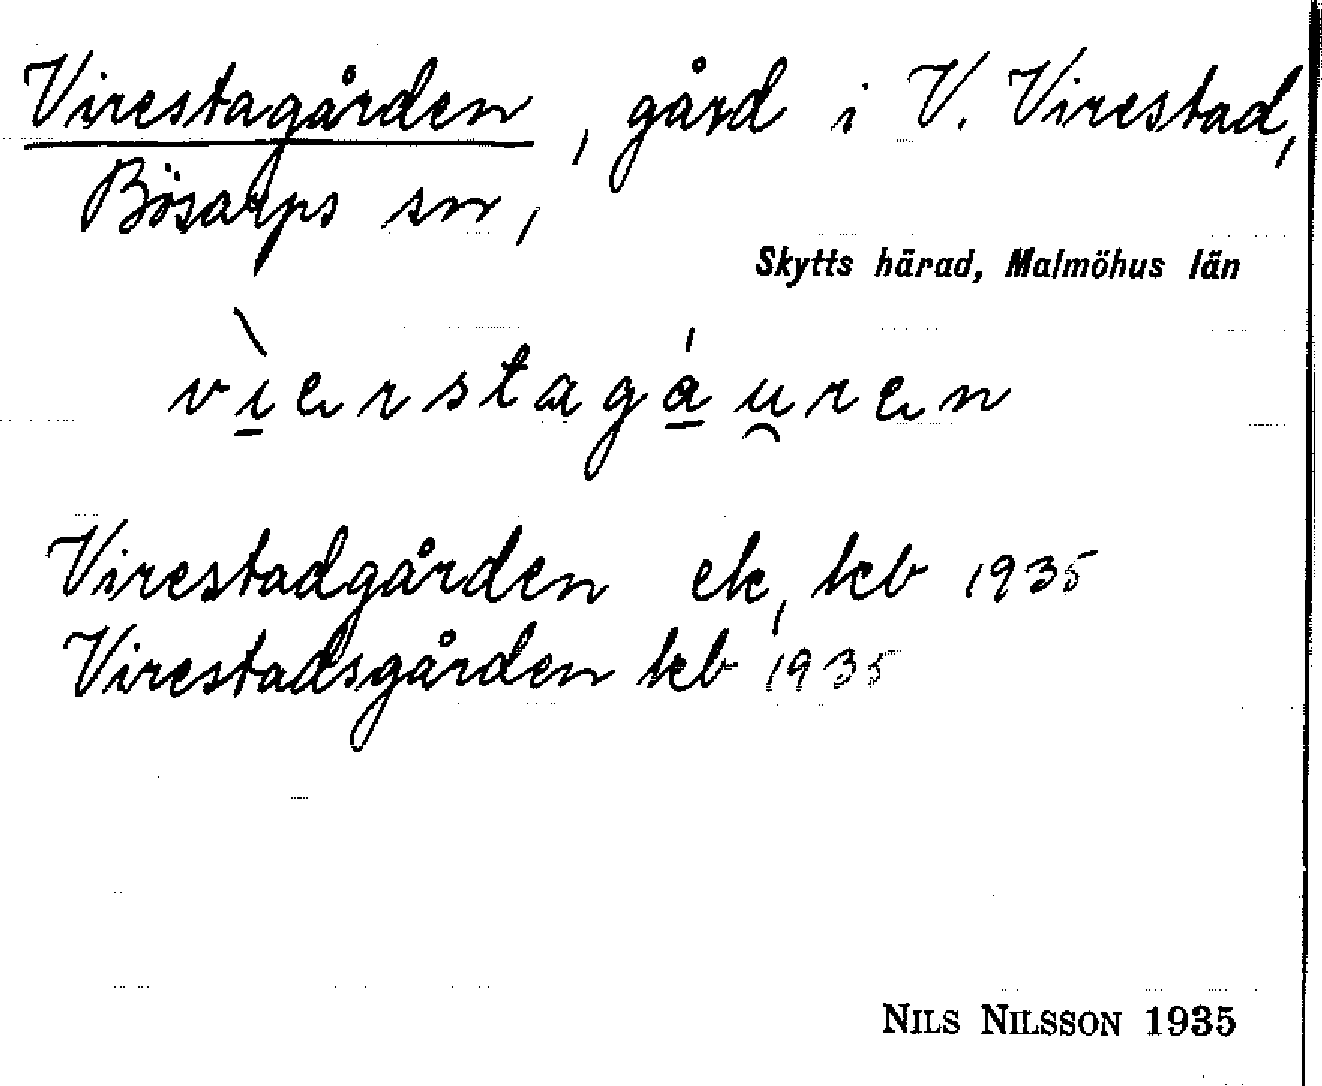 Virestagården, gård i V. Virestad,
Bösarps sn,
Skytts härad, Malmöhus län
vìerstagáu̯ren
Virestadgården ek, kb 1935
Virestadsgården kb 1935
NILS NILSSON 1935